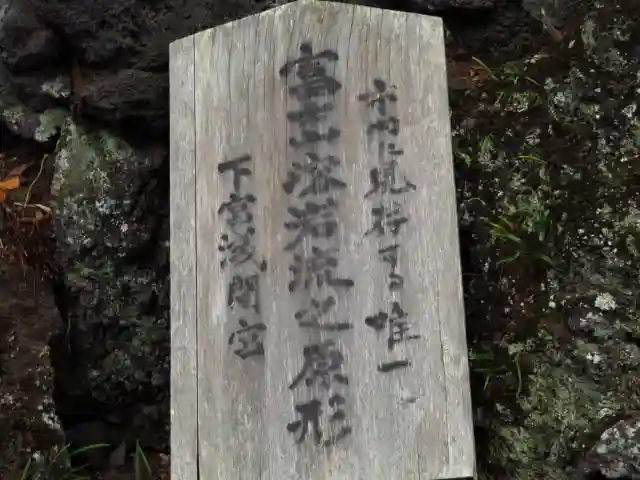 市内に見存する唯一
富士溶岩流之原形
下宮浅間宮